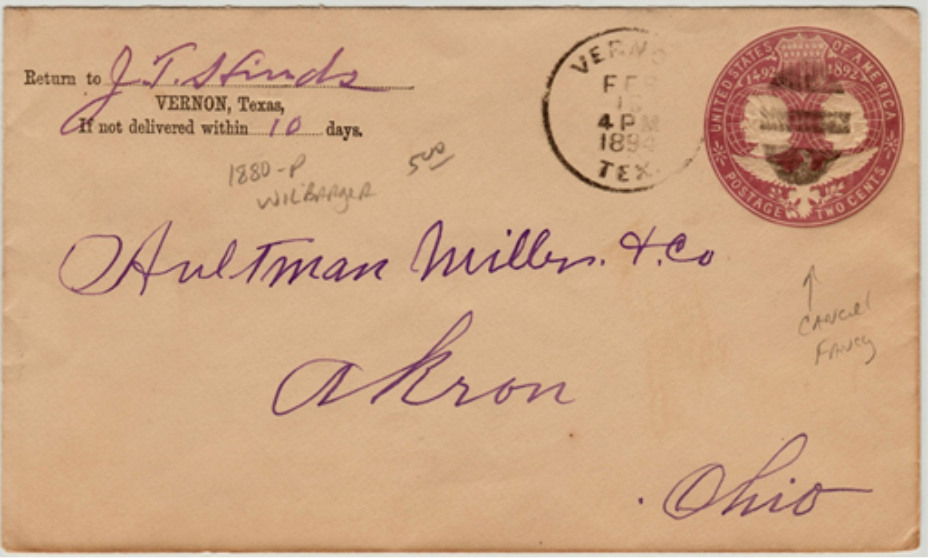 Return to J. T. Hinds
VERNON, Texas,
If not delivered within 10 days.
1880-P
WILBARGER
500
VERNO
FEB
15
4 PM
1894
TEX.
UNITED STATES OF AMERICA
1492 1892
POSTAGE TWO CENTS
Aultman Miller. & Co
Akron
Ohio
CANCEL
FANCY